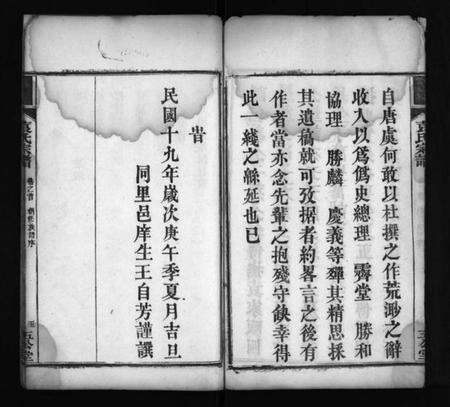 自唐虞何敢以杜撰之作荒渺之辭
收入以爲僞史總理 霽堂 勝和
協理 勝麟 慶義等殫其精思採
其遺稿就可攷据者約畧言之後有
作者當亦念先輩之抱殘守缺幸得
此一綫之緜延也已
旹
民國十九年歲次庚午季夏月吉旦
同里邑庠生王自芳謹譔
袁氏宗譜
卷之首
五公堂